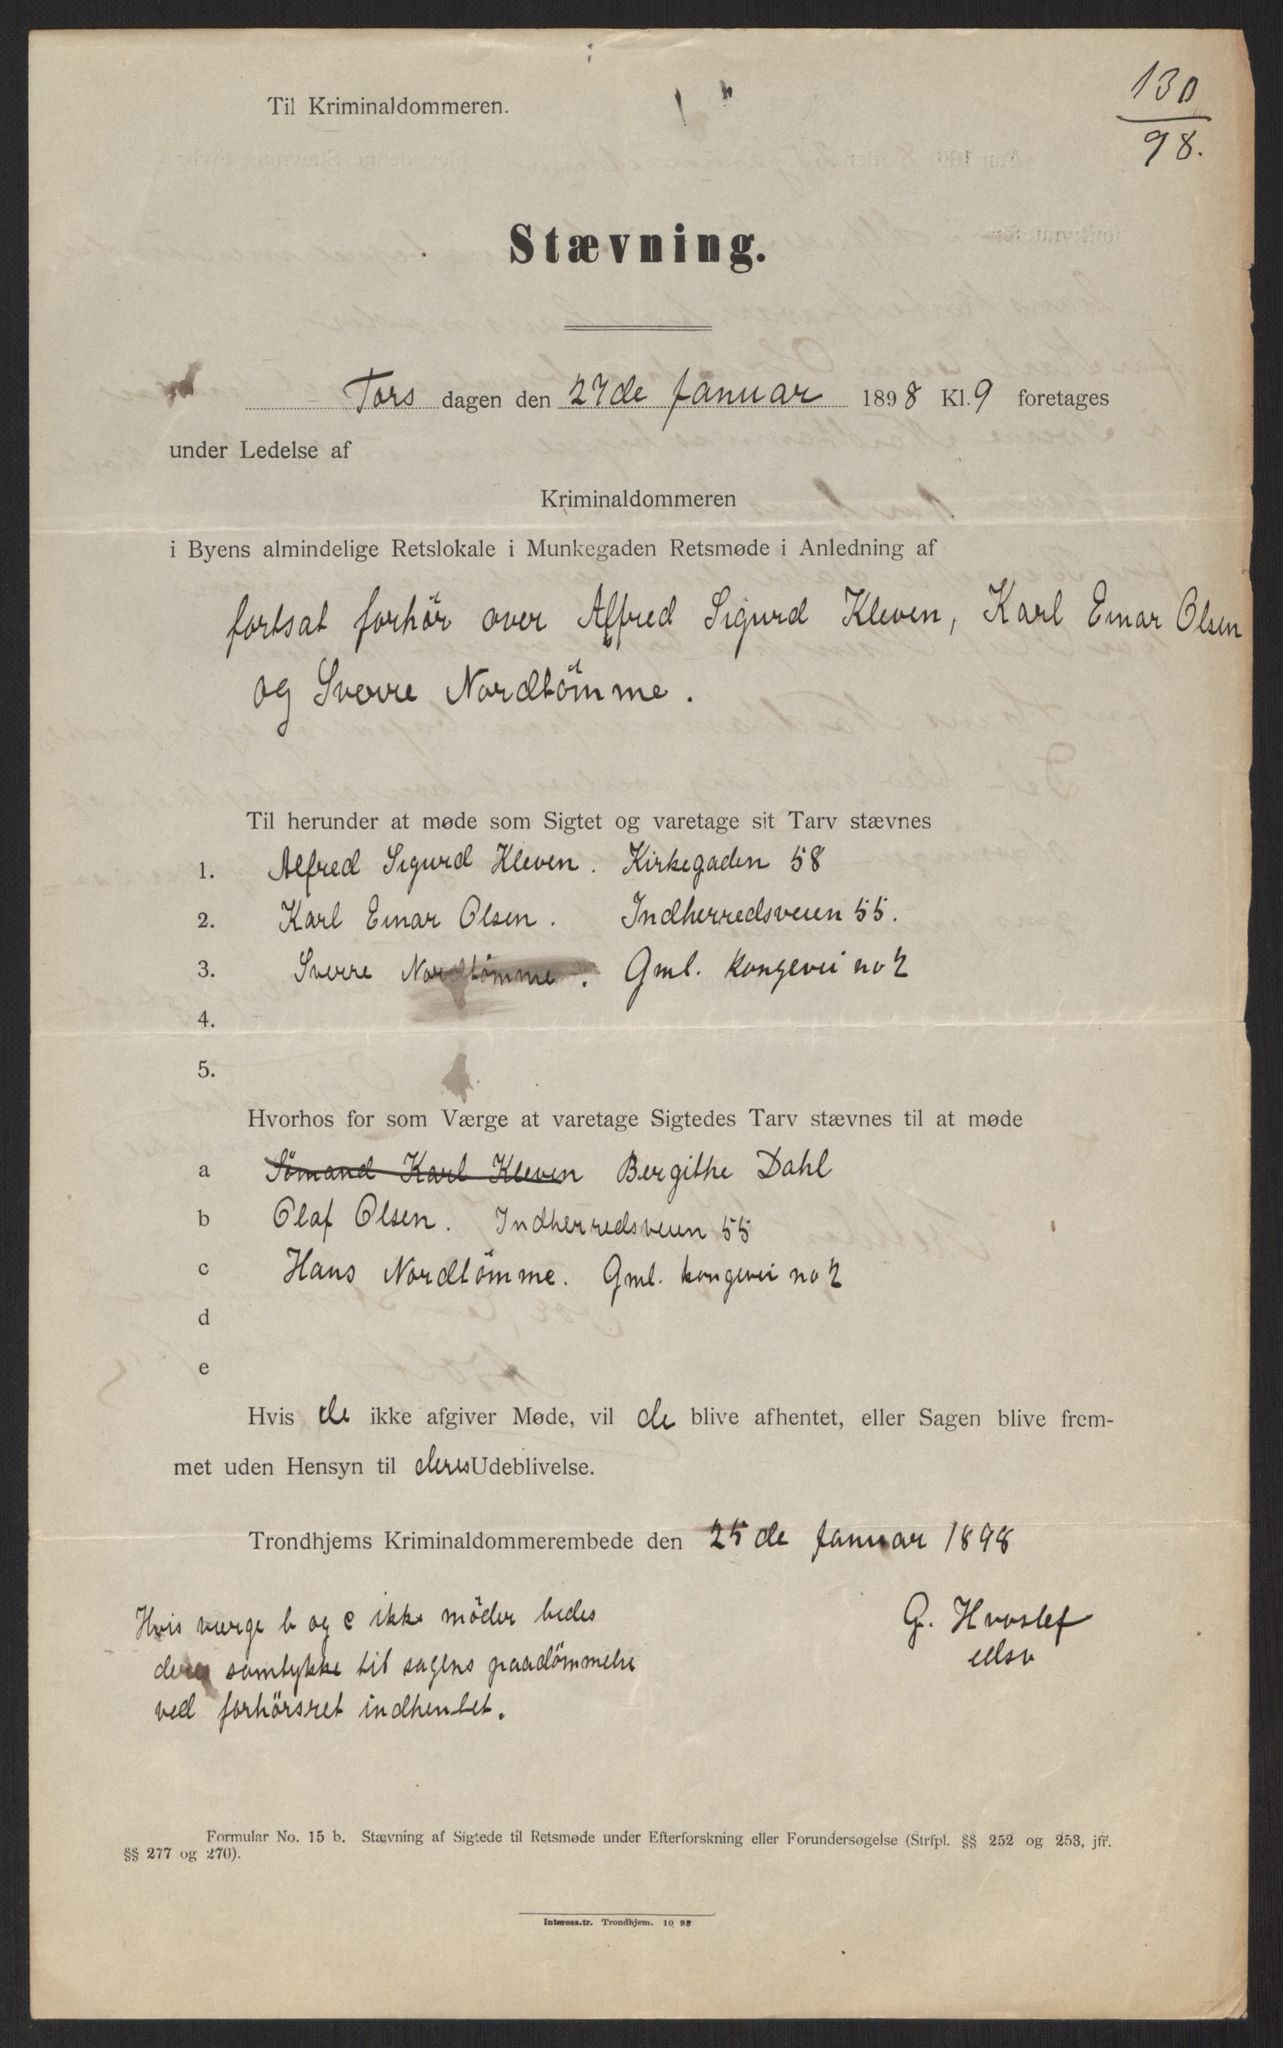 130
98.
Til Kriminaldommeren.
Stævning.
Tors dagen den 27de Januar 1898 Kl. 9 foretages
under Ledelse af
Kriminaldommeren
i Byens almindelige Retslokale i Munkegaden Retsmøde i Anledning af
fortsat forhör over Alfred Sigurd Kleven, Karl Einar Olsen
og Sverre Nordtömme.
Til herunder at møde som Sigtet og varetage sit Tarv stævnes
1. Alfred Sigurd Kleven. Kirkegaden 58
2. Karl Einar Olsen. Indherredsveien 55.
3. Sverre Nordtömme. Gml. kongevei no 2
4.
5.
Hvorhos for som Værge at varetage Sigtedes Tarv stævnes til at møde
a Sömand Karl Kleven Bergithe Dahl
b Olaf Olsen. Indherredsveien 55
c Hans Nordtömme. Gml. kongevei no 2
d
e
Hvis de ikke afgiver Møde, vil de blive afhentet, eller Sagen blive frem-
met uden Hensyn til deres Udeblivelse.
Trondhjems Kriminaldommerembede den 25de Januar 1898
Hvis værge b og c ikke möder bedes
deres samtykke til sagens paadömmelse
ved forhörsret indhentet.
G. Hvoslef
Formular No. 15 b. Stævning af Sigtede til Retsmøde under Efterforskning eller Forundersøgelse (Strfpl. §§ 252 og 253, jfr.
§§ 277 og 270).
Interess.tr. Trondhjem. 10 93